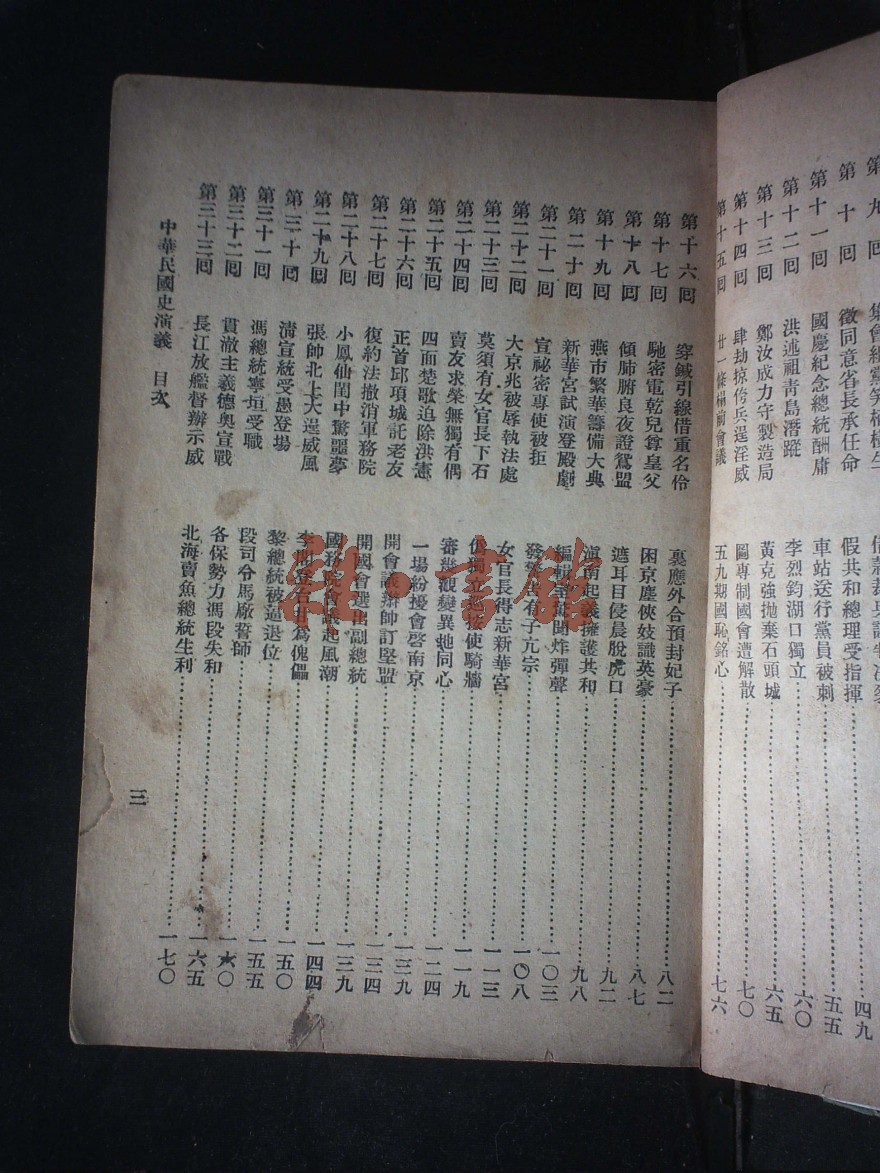 第十回　徵同意省長承任命　假共和總理受指揮　四九
第十一回　國慶紀念總統酬庸　車站送行黨員被刺　五五
第十二回　洪述祖青島潛蹤　李烈鈞湖口獨立　六〇
第十三回　鄭汝成力守製造局　黃克強拋棄石頭城　六五
第十四回　肆劫掠侉兵逞淫威　圖專制國會遭解散　七〇
第十五回　廿一條榻前會議　五九期國恥銘心　七六
第十六回　穿鍼引線借重名伶　裏應外合預封妃子　八二
第十七回　馳密電乾兒尊皇父　困京塵俠妓識英豪　八七
第十八回　傾肺腑良夜證鴛盟　遮耳目侵晨脫虎口　九二
第十九回　燕市繁華籌備大典　滇南起義擁護共和　九八
第二十回　新華宮試演登殿劇　編輯　聞炸彈聲　一〇三
第二十一回　宣祕密專使被拒　發　有子亢宗　一〇八
第二十二回　大京兆被辱執法處　女官長得志新華宮　一一三
第二十三回　莫須有女官長下石　獨立巡按使騎牆　一一九
第二十四回　賣友求榮無獨有偶　審機觀變異地同心　一二四
第二十五回　四面楚歌追除洪憲　一場紛擾會啓南京　一三九
第二十六回　正首邱項城託老友　開會議辮帥訂堅盟　一三四
第二十七回　復約法撤消軍務院　開國會選出副總統　一三九
第二十八回　小鳳仙閨中驚噩夢　國務院會議起風潮　一四四
第二十九回　張帥北上大逞威風　李　登台甘爲傀儡　一五〇
第三十回　清宣統受愚登場　黎總統被逼退位　一五五
第三十一回　馮總統寧垣受職　段司令馬廠誓師　一六〇
第三十二回　貫澈主義德奧宣戰　各保勢力馮段失和　一六五
第三十三回　長江放艦督辦示威　北海賣魚總統生利　一七〇
中華民國史演義　目次
三
雜·書館